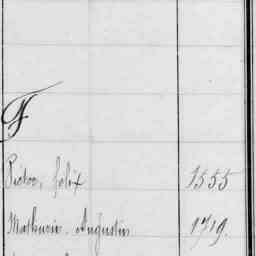 F
Pictor, Felix 1555
Mathurin, Augustin 1719.